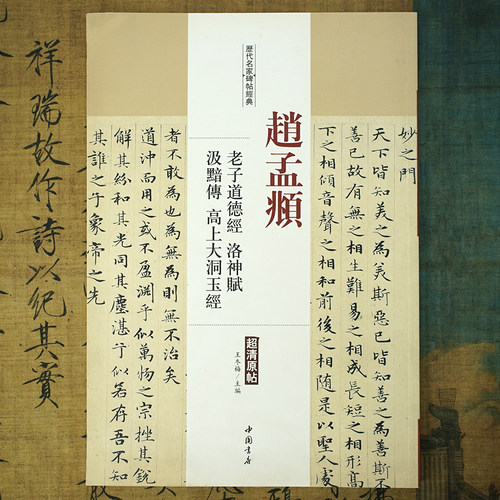 妙之門
天下皆知美之為美斯惡已皆知善之為善斯不
善已故有無之相生難易之相成長短之相形高
下之相傾音聲之相和前後之相隨是以聖人處
趙孟頫
歷代名家碑帖經典
老子道德經 洛神賦
汲黯傳 高上大洞玉經
超清原帖
王冬梅/主編
中國書店
者不敢為也為無為則無不治矣
道沖而用之或不盈淵乎似萬物之宗挫其銳
解其紛和其光同其塵湛兮似若存吾不知
其誰之子象帝之先
祥瑞故作詩以紀其實